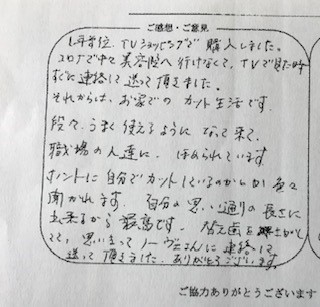 ご感想・ご意見
1年半位、TVショッピングで購入しました。
コロナで中々美容院へ行けなくて、TVで見た時
すぐに連絡して送って頂きました。
それからは、お家でのカット生活です。
段々、うまく使えるようになって来て、
職場の人達に、ほめられています
ホントに自分でカットしているのか
聞かれます。自分の思い通りの長さに
出来るから最高です。
思いきってノーヴェさんに連絡して
送って頂きました。ありがとうございます。
ご協力ありがとうございます